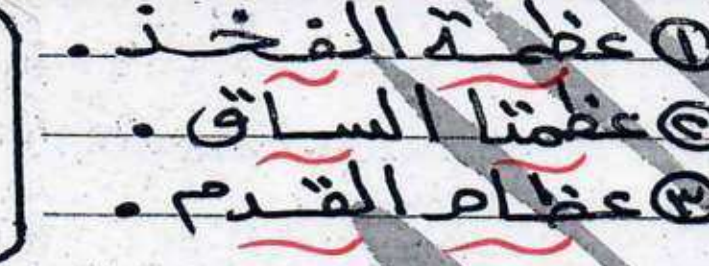 ① عظمة الفخذ .
② عظمتا الساق .
③ عظام القدم .